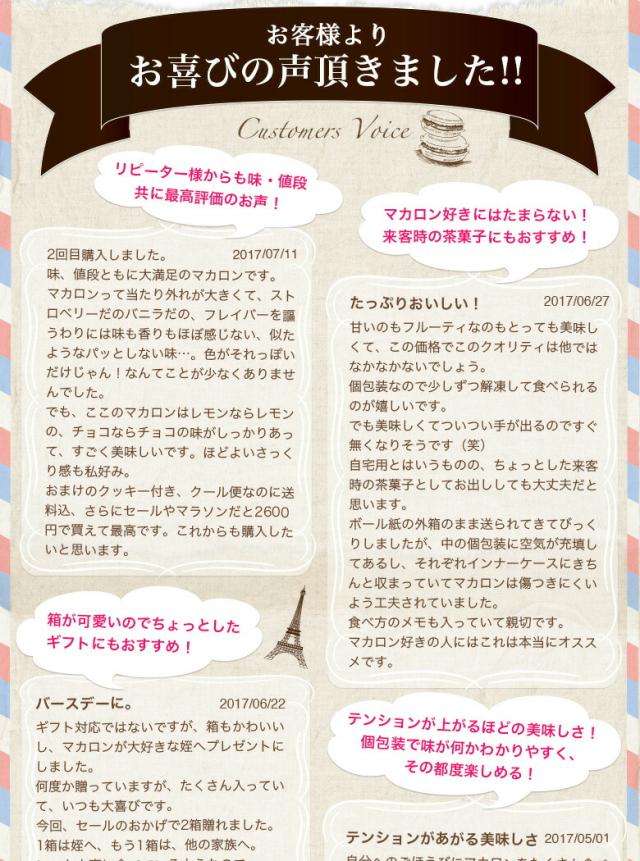 お客様より
お喜びの声頂きました!!
Customers Voice
リピーター様からも味・値段
共に最高評価のお声！
2回目購入しました。 2017/07/11
味、値段ともに大満足のマカロンです。
マカロンって当たり外れが大きくて、スト
ロベリーだのバニラだの、フレイバーを謳
うわりには味も香りもほぼ感じない、似た
ようなパッとしない味…。色がそれっぽい
だけじゃん！なんてことが少なくありませ
んでした。
でも、ここのマカロンはレモンならレモン
の、チョコならチョコの味がしっかりあっ
て、すごく美味しいです。ほどよいさっく
り感も私好み。
おまけのクッキー付き、クール便なのに送
料込、さらにセールやマラソンだと2600
円で買えて最高です。これからも購入した
いと思います。
箱が可愛いのでちょっとした
ギフトにもおすすめ！
バースデーに。 2017/06/22
ギフト対応ではないですが、箱もかわいい
し、マカロンが大好きな姪へプレゼントに
しました。
何度か贈っていますが、たくさん入ってい
て、いつも大喜びです。
今回、セールのおかげで2箱贈れました。
1箱は姪へ、もう1箱は、他の家族へ。
マカロン好きにはたまらない！
来客時の茶菓子にもおすすめ！
たっぷりおいしい！ 2017/06/27
甘いのもフルーティなのもとっても美味し
くて、この価格でこのクオリティは他では
なかなかないでしょう。
個包装なので少しずつ解凍して食べられる
のが嬉しいです。
でも美味しくてついつい手が出るのですぐ
無くなりそうです（笑）
自宅用とはいうものの、ちょっとした来客
時の茶菓子としてお出ししても大丈夫だと
思います。
ボール紙の外箱のまま送られてきてびっく
りしましたが、中の個包装に空気が充填し
てあるし、それぞれインナーケースにきち
んと収まっていてマカロンは傷つきにくい
よう工夫されていました。
食べ方のメモも入っていて親切です。
マカロン好きの人にはこれは本当にオスス
メです。
テンションが上がるほどの美味しさ！
個包装で味が何かわかりやすく、
その都度楽しめる！
テンションがあがる美味しさ 2017/05/01